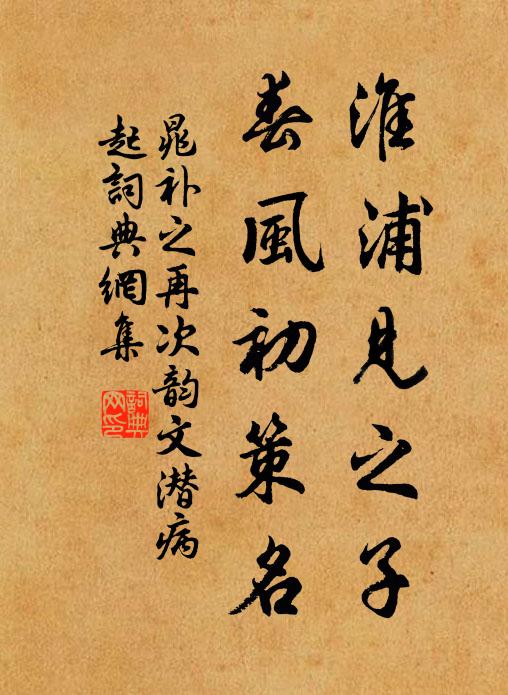 淮浦见之子
春風初策名
晁补之再次韵文潜病
起詞典網集
詞典网印